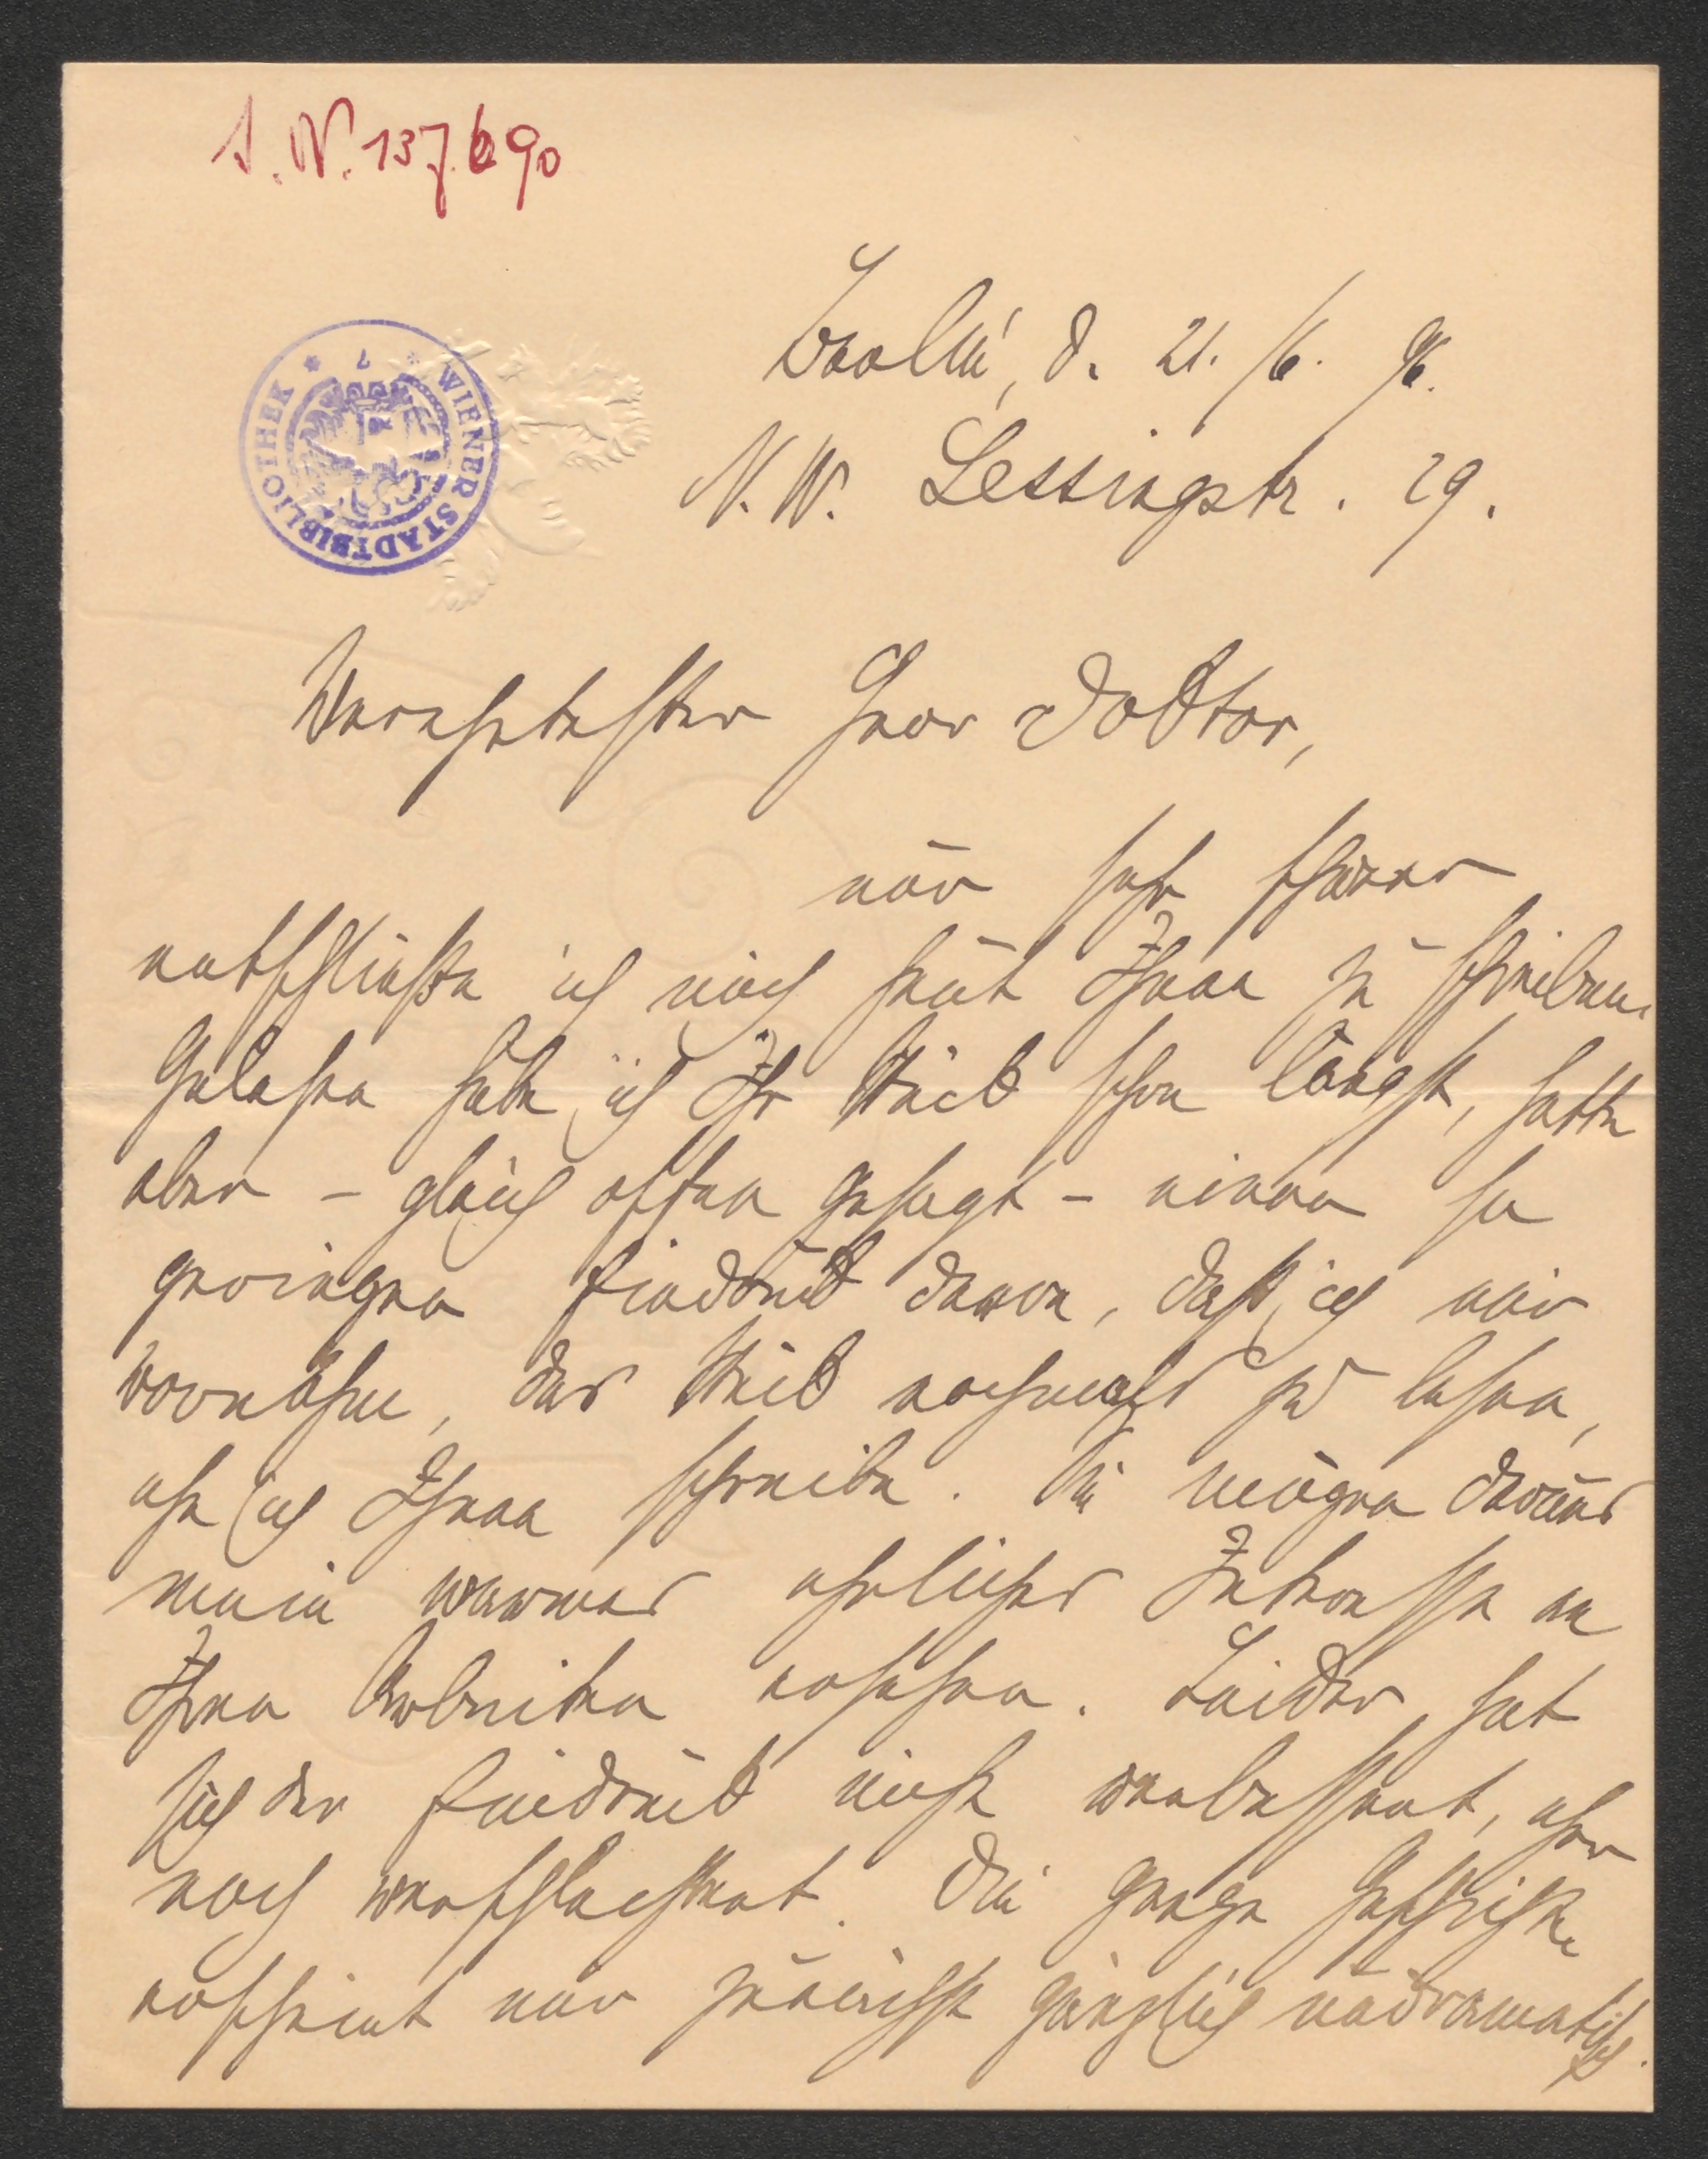 I. N. 137.690
WIENER STADTBIBLIOTHEK
Berlin, d. 21./6. 96.
N. W. Lessingstr. 29.
Verehrtester Herr Doktor,
nur sehr schwer
entschließe ich mich heut Ihnen zu schreiben.
Gelesen habe ich Ihr Stück schon längst, hatte
aber – gleich offen gesagt – einen so
geringen Eindruck davon, daß ich mir
vornahm, das Stück nochmals zu lesen,
ehe ich Ihnen schreibe. Sie mögen daraus
mein warmes ehrliches Interesse an
Ihren Arbeiten ersehen. Leider hat
sich der Eindruck nicht verbessert, eher
noch verschlechtert. Die ganze Geschichte
erscheint mir zunächst gänzlich undramatisch.